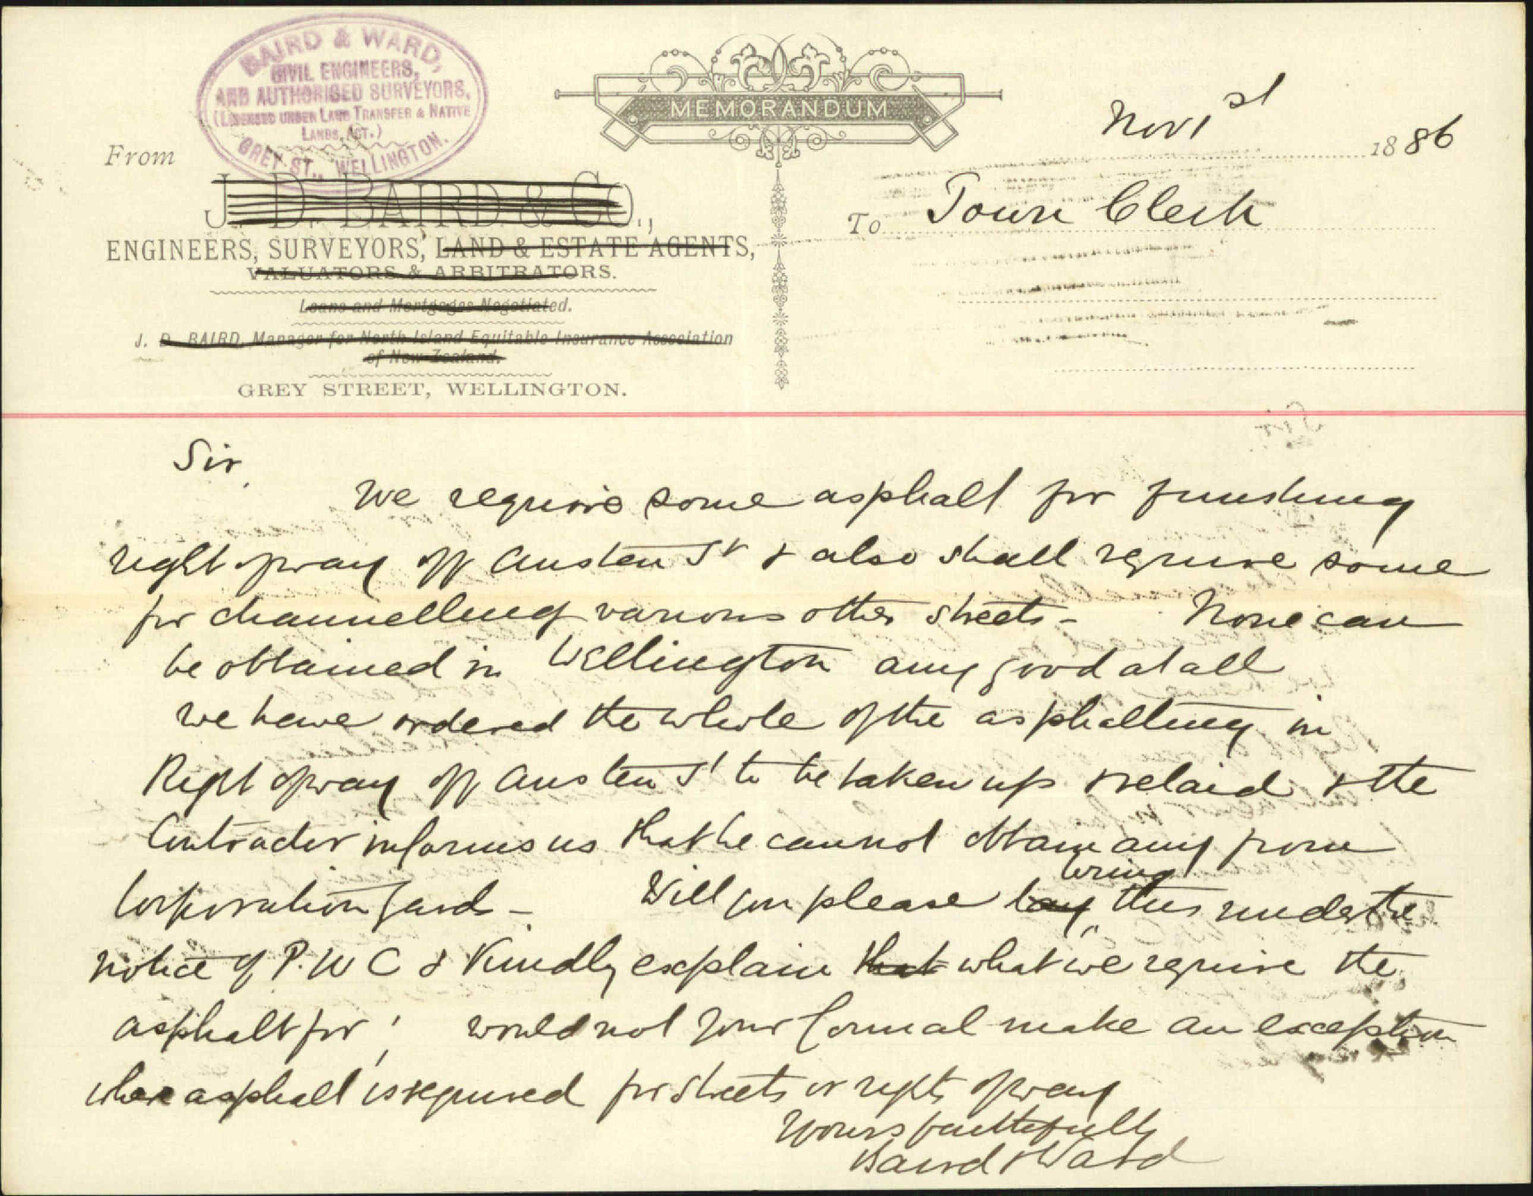 BAIRD & WARD,
CIVIL ENGINEERS,
AND AUTHORISED SURVEYORS,
(LICENSED UNDER LAND TRANSFER & NATIVE
LANDS ACT.)
GREY ST., WELLINGTON.
MEMORANDUM
Nov 1st 1886
From
J. D. BAIRD & CO.,
To Town Clerk
ENGINEERS, SURVEYORS, LAND & ESTATE AGENTS,
VALUATORS & ARBITRATORS.
Loans and Mortgages Negotiated.
J. D. BAIRD, Manager for North Island Equitable Insurance Association
of New Zealand.
GREY STREET, WELLINGTON.
Sir,
We require some asphalt for finishing
right of way off Austen St & also shall require some
for channelling various other streets - None can
be obtained in Wellington any good at all
we have ordered the whole of the asphalting in
Right of way off Austen St to be taken up & relaid & the
Contractor informs us that he cannot obtain any from
Corporation Yard - Will you please lay bring this under the
notice of P.W C & Kindly explain that what we require the
asphalt for; would not your Council make an exception
where asphalt is required for streets or rights of way
Yours faithfully
Baird & Ward